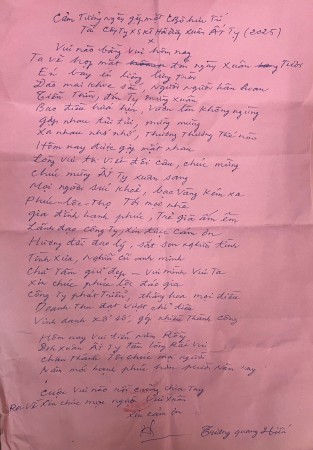 Cảm Tưởng ngày gặp mặt CBộ hưu Trí
Tại CTy XSKT Hải Dương xuân Ất Tỵ (2025)
Vui nào bằng vui hôm nay
Ta về họp mặt đón ngày xuân Tươi
Én bay én liệng lưng Trời
Đào mai khoe sắc, người người hân hoan
Tiễn Thìn, đón Tỵ mừng xuân
Bao điều hứa hẹn, vươn lên không ngừng
Gặp nhau tíu tít, mừng mừng
Xa nhau nhớ nhớ, thương thương
Hôm nay được gặp mặt nhau
Lòng vui ta viết đôi câu, chúc mừng
Chúc mừng Ất Tỵ xuân sang
Mọi người sức khoẻ, bạc vàng kém xa
Phúc - Lộc - Thọ Tới mọi nhà
Gia đình hạnh phúc, Trẻ già ấm êm
Lãnh đạo Công Ty, xin được cảm ơn
Hướng đời đạo lý, sắt son nghĩa tình
Tình xưa, nghĩa cũ anh minh
Chữ Tâm giữ đẹp - vui mình vui Ta
Xin chúc phúc lộc đáo gia
Công Ty phát Triển, thăng hoa mọi điều
Doanh Thu đạt vượt chỉ tiêu
Vinh danh xổ số, gặt nhiều Thành công
Hôm nay vui
xuân Ất Tỵ Tấm lòng
Chân Thành Tôi chúc mọi người
Năm mới hạnh phúc hơn năm nay
Cuộc vui nào rồi cũng chia Tay
Ra về xin chúc mọi người vui xuân
Xin cảm ơn
Trương Quang